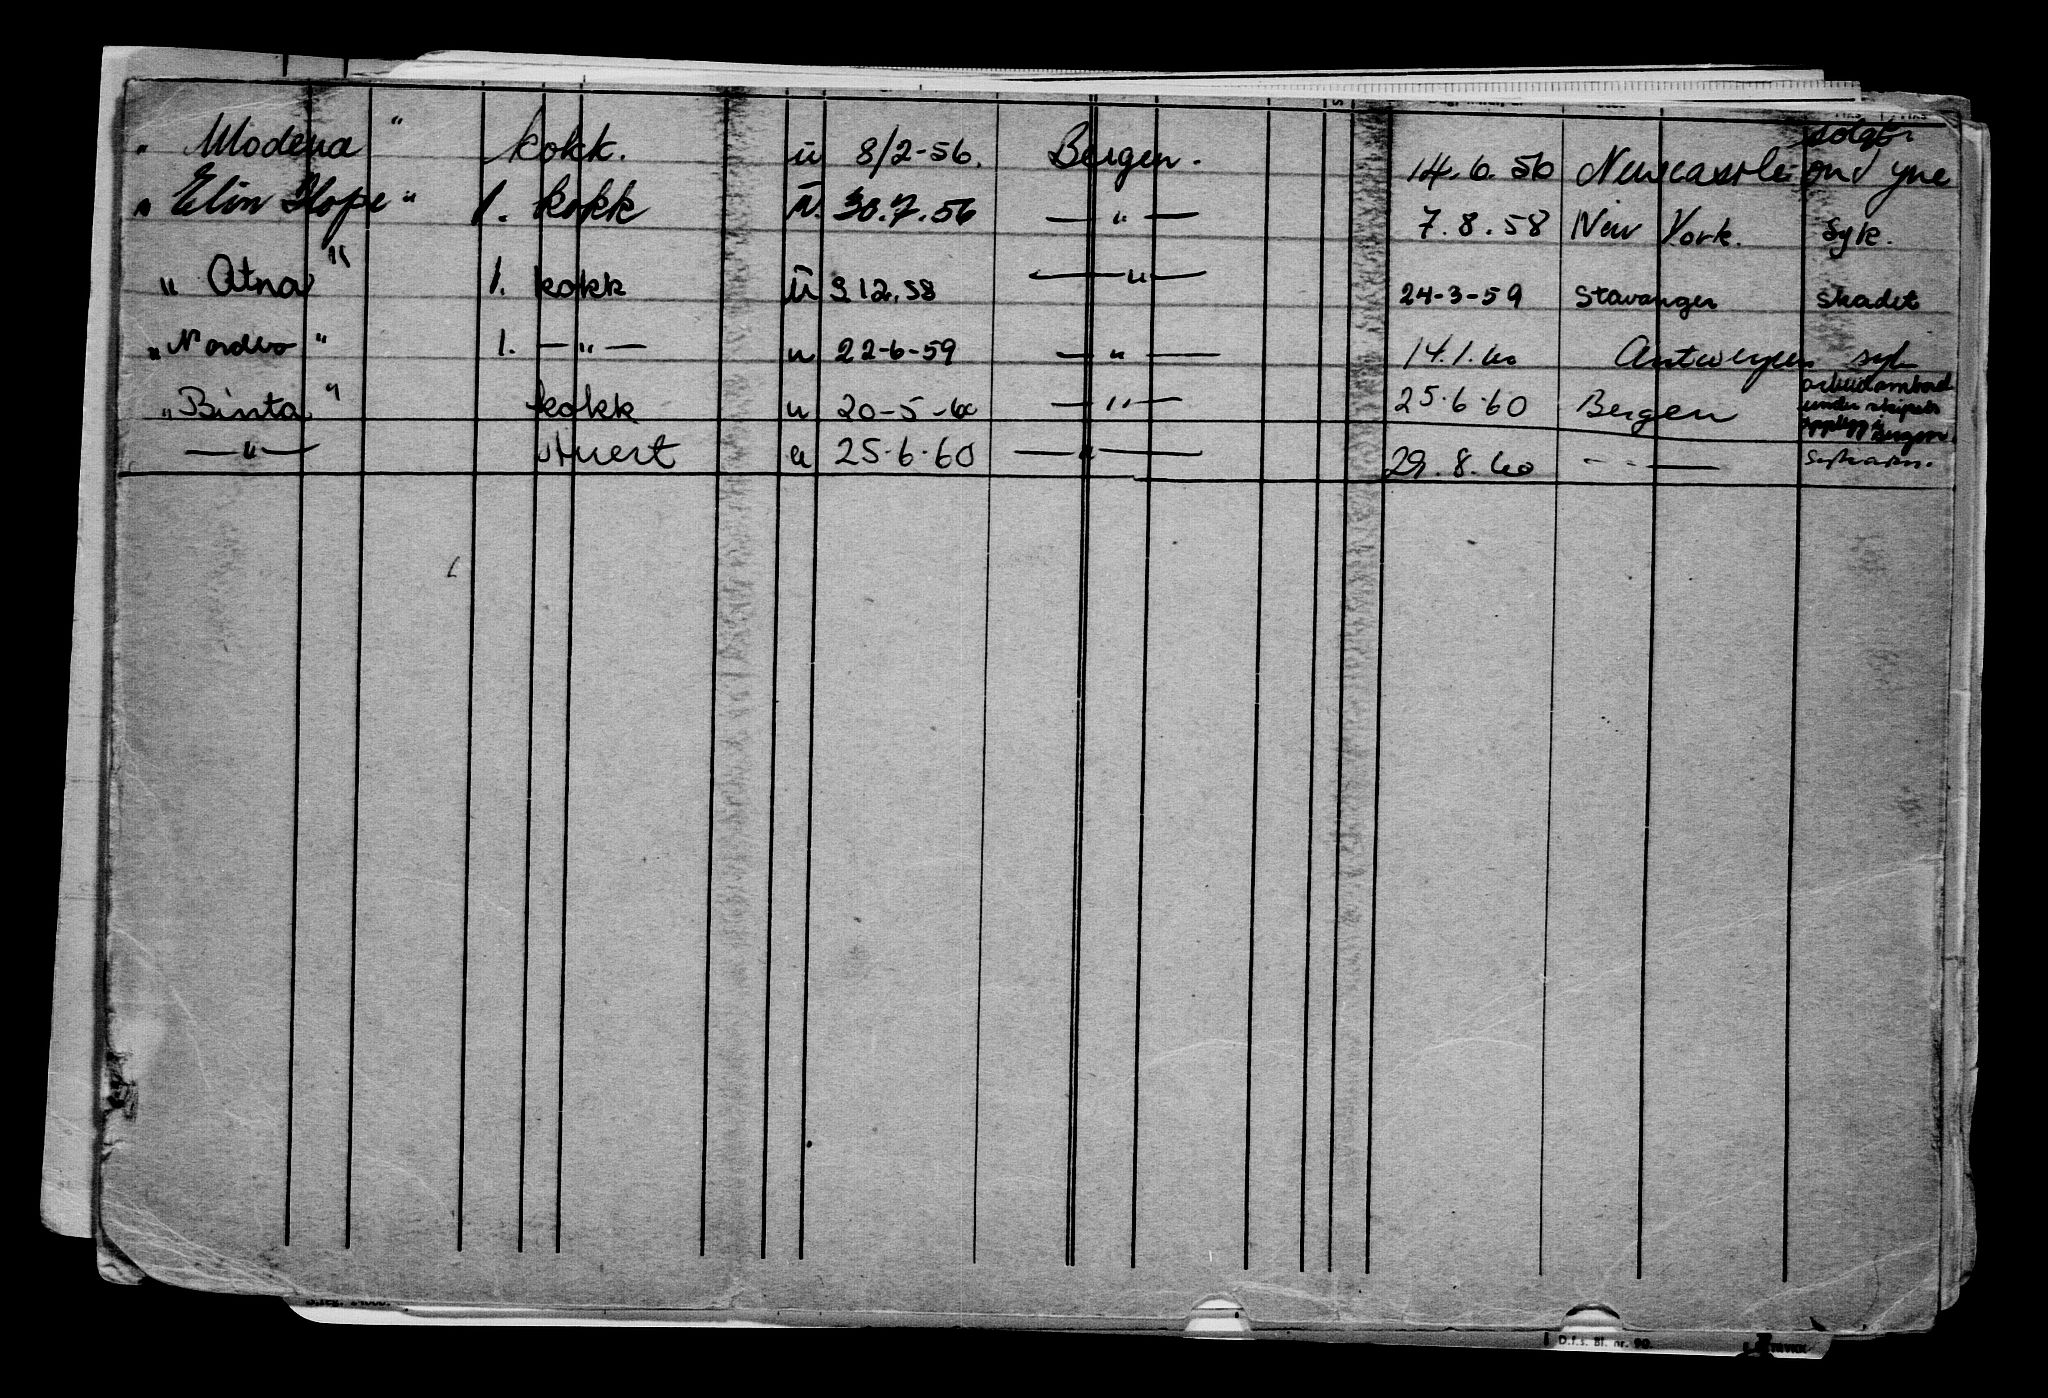 „ Modena " kokk. u 8/2-56. Bergen. 14.6.56 Newcastle on Tyne solgt
„ Elin Hope " 1. kokk u. 30.7.56 — " — 7.8.58 New York. Syk.
" Atna " 1. kokk u 9.12.58 — " — 24-3-59 Stavanger skadet
„ Nordvo " 1. — " — u 22-6-59 — " — 14.1.60 Antwerpen syk
„ Binta " kokk u 20-5-60 — " — 25.6.60 Bergen arbeid ombord
under skipets
opplegg i Bergen
— " — stuert u 25.6.60 — " — 29.8.60 - - —
D.f.s. Bl. nr. 90.